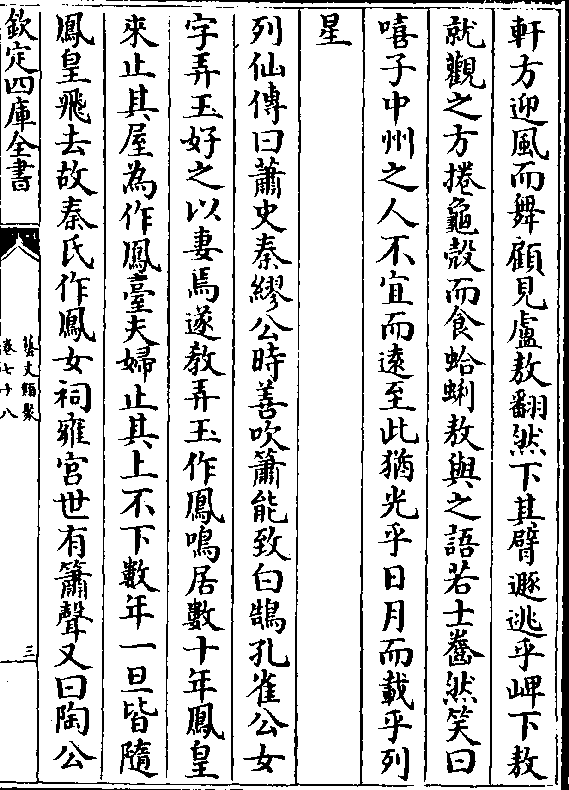 軒方迎風而舞顧見盧敖翻然下其臂遯逃乎岬下敖
就觀之方捲龜殼而食蛤蜊敖與之語若士齤然笑曰
嘻子中州之人不宜而遠至此猶光乎日月而載乎列
星
列仙傳曰蕭史秦繆公時善吹簫能致白鵠孔雀公女
字弄玉好之以妻焉遂教弄玉作鳳鳴居數十年鳳皇
來止其屋為作鳳臺夫婦止其上不下數年一旦皆隨
鳳皇飛去故秦氏作鳳女祠雍宮世有簫聲又曰陶公
欽定四庫全書
藝文類聚
卷七十八
三